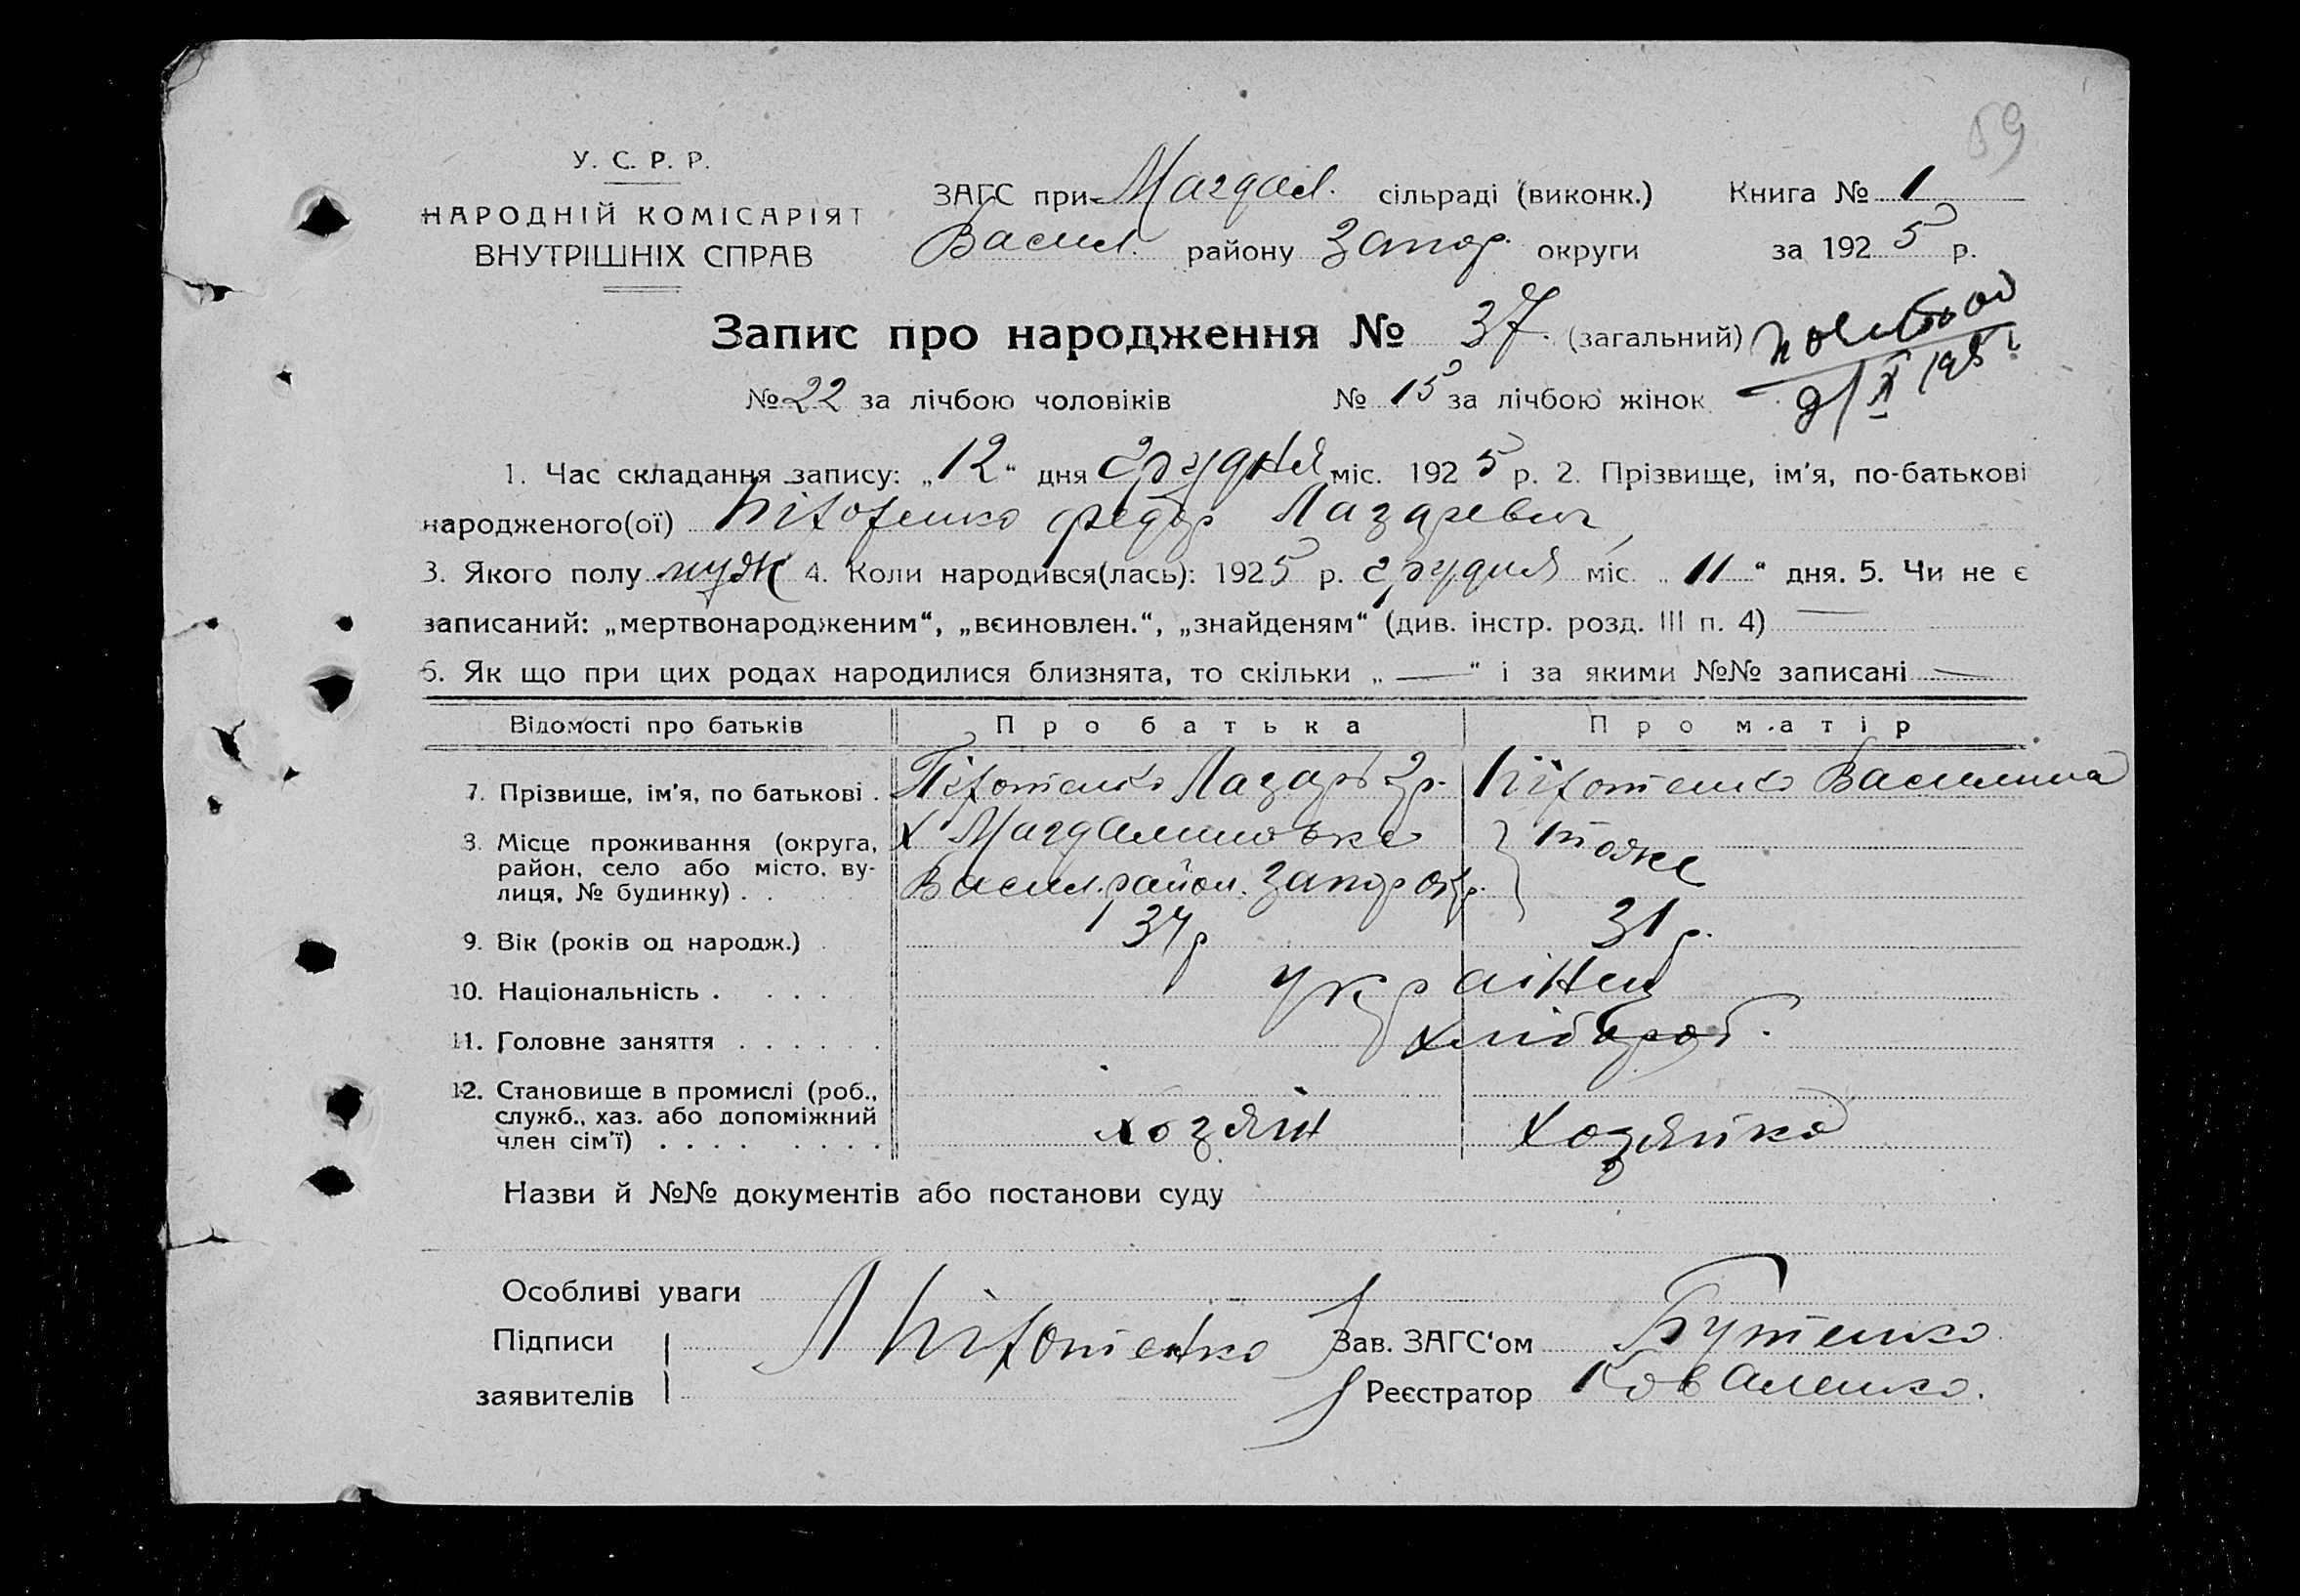 59
У. С. Р. Р.
НАРОДНІЙ КОМІСАРІЯТ
ВНУТРІШНІХ СПРАВ
ЗАГС при Магдал. сільраді (виконк.) Книга № 1
Васил. району Запор. округи за 1925 р.
Запис про народження № 37. (загальний)
№ 22 за лічбою чоловіків № 15 за лічбою жінок
1. Час складання запису: „12“ дня грудня міс. 1925 р. 2. Прізвище, ім'я, по-батькові
народженого(ої) Федор Лазаревич
3. Якого полу муж 4. Коли народився(лась): 1925 р. грудня міс. „11“ дня. 5. Чи не є
записаний: „мертвонародженим“, „всиновлен.“, „знайденям“ (див. інстр. розд. III п. 4) —
6. Як що при цих родах народилися близнята, то скільки „—“ і за якими №№ записані —
Відомості про батьків Про батька Про матір
7. Прізвище, ім'я, по батькові . Лазарь Гр. Василина
8. Місце проживання (округа, район, село або місто, вулиця, № будинку) . . х Магдалиновка Васил. район. Запор окр. тоже
9. Вік (років од народж.) . 34 р 31 р.
10. Національність . . . . . українц
11. Головне заняття . . . . . . хлібороб.
12. Становище в промислі (роб., служб., хаз. або допоміжний член сім'ї) . . . . . . . . хозяін хозяйка
Назви й №№ документів або постанови суду
Особливі уваги
Підписи Л Зав. ЗАГС'ом Бутенко
заявителів Реєстратор Коваленко.